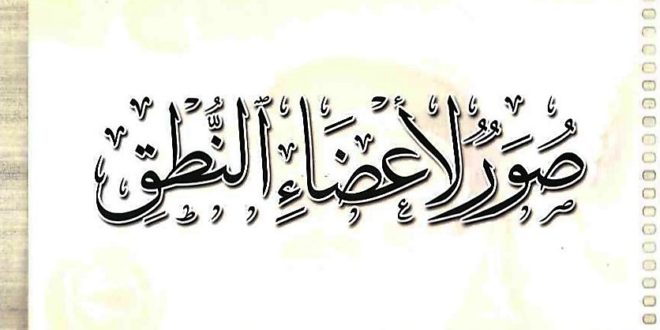 صُوَرٌ لأَعْضَاءِ ٱلنُّطْقِ